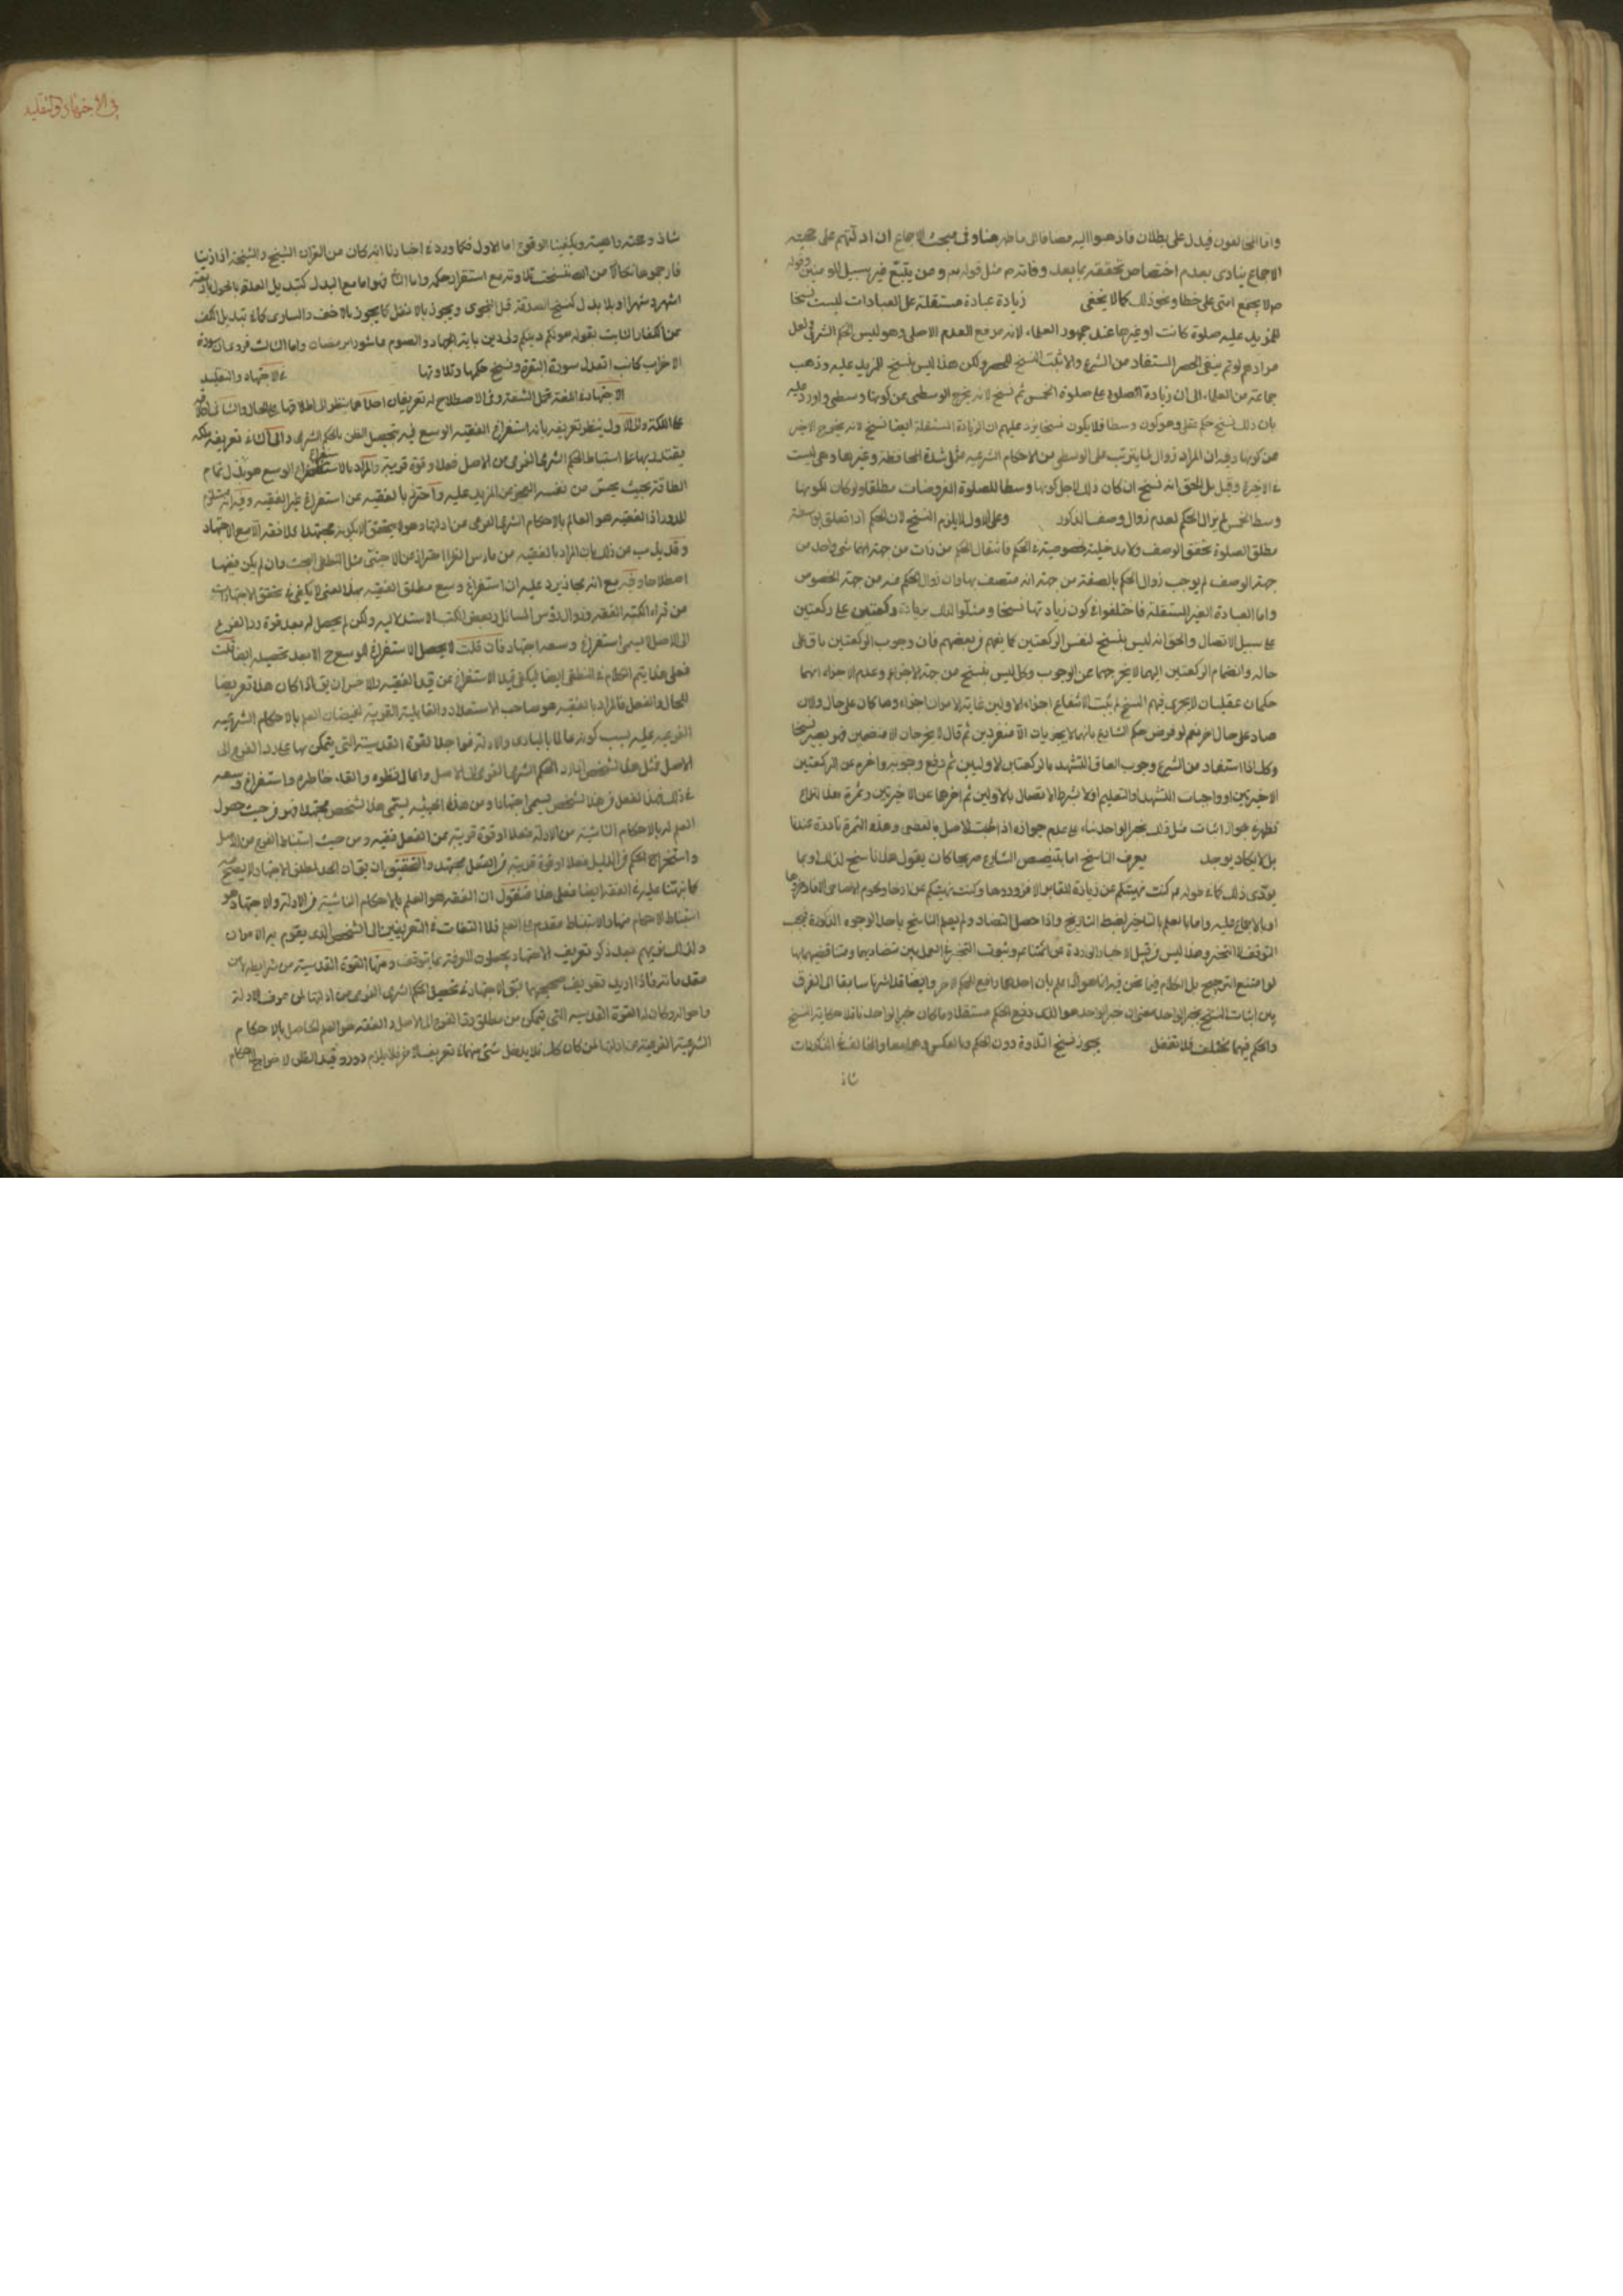 واما المخالفون فيدل على بطلان ما ذهبوا اليه مضافا الى ما ظهر هنا وفى مبحث الاجماع ان ادلتهم على حجية
الاجماع ينادى بعدم اختصاص تحققه بما بعد وفاته ص مثل قوله تع ومن يتبع غير سبيل المومنين وقوله
ص لا يجتمع امتى على خطا ونحو ذلك كما لا يخفى زيادة عبادة مستقلة على العبادات ليست نسخا
للمزيد عليه صلوة كانت او غيرها عند جمهور العلماء لانه رفع العدم الاصلى وهو ليس الحكم الشرعى ولعل
مرادهم لو تم ينفى الحصر المستفاد من الشرع والا ثبت النسخ للحصر ولكن هذا ليس بنسخ للمزيد عليه وذهب
جماعة من العلماء الى ان زيادة الصلوة على صلوة الخمس ثم نسخ لانه يخرج الوسطى عن كونها وسطى واورد عليه
بان ذلك نسخ حكم عقلى وهو كون وسطا فلا يكون نسخا يرد عليهم ان الزيادة المستقلة ايضا نسخ لانه يخرج الاخر
عن كونها وفيه ان المراد زوال ما يترتب على الوسطى من الاحكام الشرعيه مثل شدة المحافظة وغيرها وهى ليست
فى الاخيرة وقيل بل الحق انه نسخ ان كان ذلك لاجل كونها وسطا للصلوة المفروضات مطلقا ولو كان لكونها
وسط الخمس لم يزال الحكم لعدم زوال وصف المذكور وعلى الاول لا يلزم النسخ لان الحكم اذا تعلق بوسطية
مطلق الصلوة تحقق الوصف ولا مدخلية لخصوصيته فى الحكم فانتقال الحكم من ذات من جهة انها شىء واحد من
جهة الوصف لم يوجب زوال الحكم بالصفة من جهة انه متصف بها وان زوال الحكم عنه من جهة الخصوص
واما العبادة الغير المستقلة فاختلفوا فى كون زيادتها نسخا ومثلوا لذلك بزيادة ركعتين على ركعتين
على سبيل الاتصال والحق انه ليس بنسخ لنفس الركعتين كما يفهم من بعضهم فان وجوب الركعتين باق على
حاله وانضمام الركعتين اليهما لا يخرجهما عن الوجوب وكل ليس بنسخ من جهة الاجزاء وعدم الاجزاء انهما
حكمان عقليان لا يجرى فيهم النسخ
صار على حال اخر نعم لو فرض حكم الشارع بانهما لا يجزيان الا منفردين ثم قال لا يجزيان الا منضمين فهو يصير نسخا
وكذا اذا استفاد من الشرع وجوب الصاق التشهد بالركعتين الاوليين ثم رفع وجوبه واخره عن الركعتين
الاخيرتين او واجبات التشهد او التعليم اولا بشرط الاتصال بالاولين ثم اخرها عن الاخيرتين وثمرة هذا النزاع
تظهر فى جواز اثبات مثل ذلك بخبر الواحد بناء على عدم جوازه اذا اثبت الاصل بالقطعى وهذه الثمرة نادرة عندنا
بل لا يكاد يوجد يعرف الناسخ اما بتنصيص الشارع صريحا كان يقول هذا ناسخ لذلك او بما
يودى ذلك كما فى قوله ص كنت نهيتكم عن زيارة القبور الا فزوروها وكنت نهيتكم عن ادخار لحوم الاضاحى الا فادخروها
او بالاجماع عليه واما بالعلم بالتاخر لضبط التاريخ واذا حصل التضاد ولم يعلم الناسخ باحد الوجوه المذكورة فيجب
التوقف لا التخير وهذا ليس من قبيل الاخبار الواردة عن ائمتنا ع وثبوت التخيير فى العمل بين متضاديهما ومتناقضيهما بها
لو امتنع الترجيح بل الكلام فيما نحن فيه انما هو اذا علم بان احدهما رافع لحكم الاخر وايضا قد اشرنا سابقا الى الفرق
بين اثبات النسخ بخبر الواحد بمعنى ان خبر الواحد هو الذى رفع الحكم مستقلا وما كان خبر الواحد ناقلا حكاية النسخ
والحكم فيهما مختلف فلا تغفل يجوز نسخ التلاوة دون الحكم وبالعكس وهما معا والمخالف فى المذكورات
شاذ
فى الاجتهاد والتقليد
شاذ وحجته واهية ويكفينا الوقوع اما الاول فكما ورد فى اخبارنا انه كان من القران الشيخ والشيخة اذا زنيا
فارجموهما نكالا من الله فنسخت تلاوته مع استقرار حكمه واما الثانى فهو اما مع البدل كتبديل العدة بالحول باربعة
اشهر وعشرا او بلا بدل كنسخ الصدقة قبل النجوى ويجوز بالاثقل كما يجوز بالاخف والمساوى كما فى تبديل الكف
عن الكفار الثابت بقوله تع لكم دينكم ولى دين باية الجهاد والصوم عاشورا برمضان واما الثالث فروى ان سورة
الاحزاب كانت تعدل سورة البقرة ونسخ حكمها وتلاوتها فى الاجتهاد والتقليد
الاجتهاد فى اللغة تحمل المشقة وفى الاصطلاح له تعريفان احدهما ينظر الى اطلاقها على الحال والثانى اطلاقه
على الملكة والى الاول ينظر تعريفه بانه استفراغ الفقيه الوسع فى تحصيل الظن بالحكم الشرعى والى الثانى تعريفه ملكة
يقتدر بها على استنباط الحكم الشرعى الفرعى من الاصل فعلا او قوة قريبة والمراد بالاستفراغ الوسع هو بذل تمام
الطاقة بحيث يحس من نفسه العجز عن المزيد عليه واحترز بالفقيه عن استفراغ غير الفقيه وفيه انه مستلزم
للدور اذ الفقيه هو العالم بالاحكام الشرعية الفرعى عن ادلتها وهو لا يتحقق الا بكونه مجتهدا فلا فقه الا مع الاجتهاد
وقد يذب عن ذلك بان المراد بالفقيه من مارس الفن احترازا عن الاجنبى مثل المنطقى البحت وان لم يكن فقيها
اصطلاحا وفيه مع انه مجاز يرد عليه ان استفراغ وسع مطلق الفقيه بهذا المعنى لا يكفى فى تحقق الاجتهاد
من قراء الكتب الفقه وزوال لروس المسائل وبعض الكتب الاستدلاليه ولكن لم يحصل له بعد قوة رد الفرع
الى الاصل لا يسمى استفراغ وسعه اجتهاد فان قلت لا يحصل الاستفراغ الوسع ح الا بعد تحصيله ايضا قلت
فعلى هذا يتم الكلام فى المنطقى ايضا ليكفى قيد الاستفراغ عن قيد الفقيه فالاحسن ان يق اذا كان هذا تعريفا
للحال والفعل فالمراد بالفقيه هو صاحب الاستعداد والقابلية القريبة لفيضان العلم بالاحكام الشرعيه
الفرعيه عليه بسبب كونه عالما بالمبادى والادلة فواجدا لقوة القدسية التى يتمكن بها على رد الفرع الى
الاصل فمثل هذا الشخص اذا رد الحكم الشرعى الفرعى الى الاصل واعمال نظره والقاء خاطره واستفراغ وسعه
فى ذلك فهذا الفعل من هذا الشخص يسمى اجتهادا ومن هذه الحيثيه يسمى هذا الشخص مجتهدا فهو من حيث حصول
العلم له بالاحكام الناشية من الادلة فعلا او قوة قريبة من الفعل فقيه ومن حيث استنباط الفرع من الاصل
واستخراج الحكم من الدليل فعلا او قوة قريبة من الفعل مجتهد والتحقيق ان يق ان الحد لمطلق الاجتهاد لا يصح
كما نبهنا عليه فى الفقه ايضا فعلى هذا فنقول ان الفقه هو العلم بالاحكام الناشية من الادلة والاجتهاد هو
استنباط الاحكام منها والاستنباط مقدم على العلم فلا التفات فى التعريفين الى الشخص الذى يقوم به الامران
ولذلك فهم بعد ذكر تعريف الاجتهاد يجعلون المعرفة بما يتوقف ومنها القوة القدسية من شرايطه
مقدماته فاذا اريد تعريف صحيحها يق الاجتهاد تحصيل الحكم الشرعى الفرعى من ادلتها لمن عرف الادلة
واحواله وكان له القوة القدسيه التى يتمكن من مطلق رد الفرع الى الاصل والفقه هو العلم الحاصل بالاحكام
الشرعية الفرعية عن ادلتها لمن كان كك فلا يدخل شىء منهما فى تعريف الاخر فلا يلزم دور وقيد الظن لاخراج الاحكام